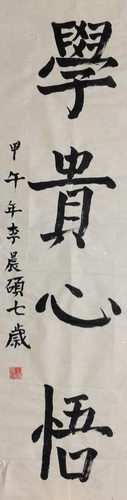 學貴心悟
甲午年李晨碩七歲